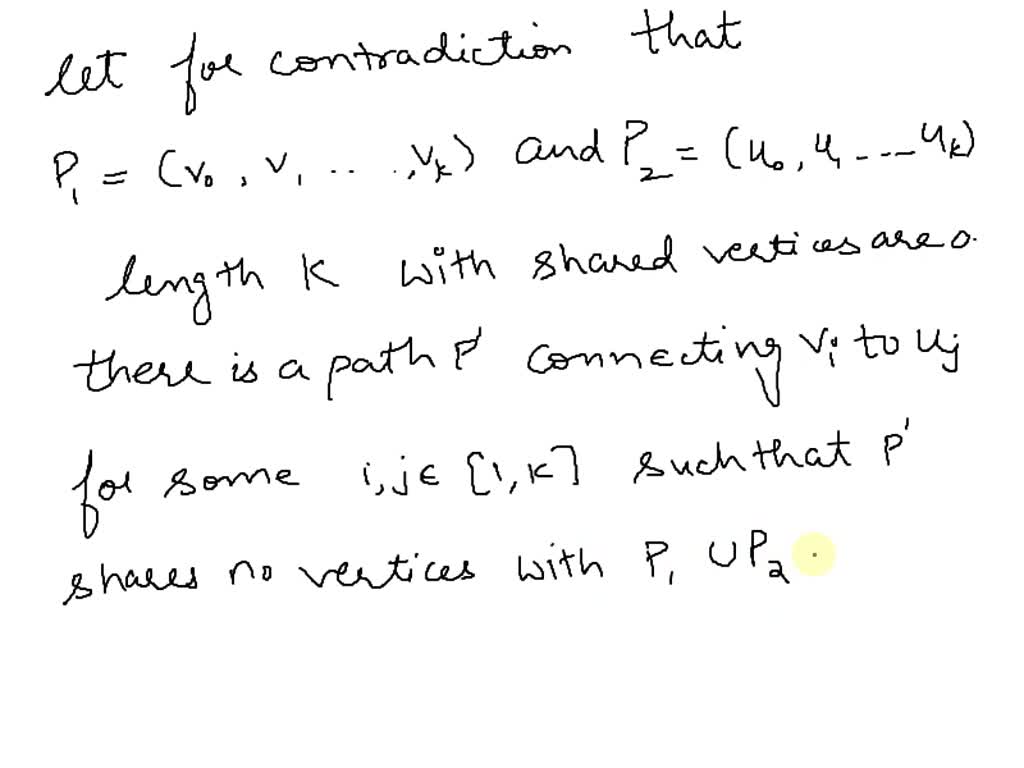 let for contradiction that
P₁ = (v₀, v₁ ...., vₖ) and P₂ = (u₀, u₁ ---- uₖ)
length K with shared vertices are o.
there is a path P' connecting vᵢ to uⱼ
for some i,j ∈ [1,k] such that P'
shares no vertices with P₁ ∪ P₂